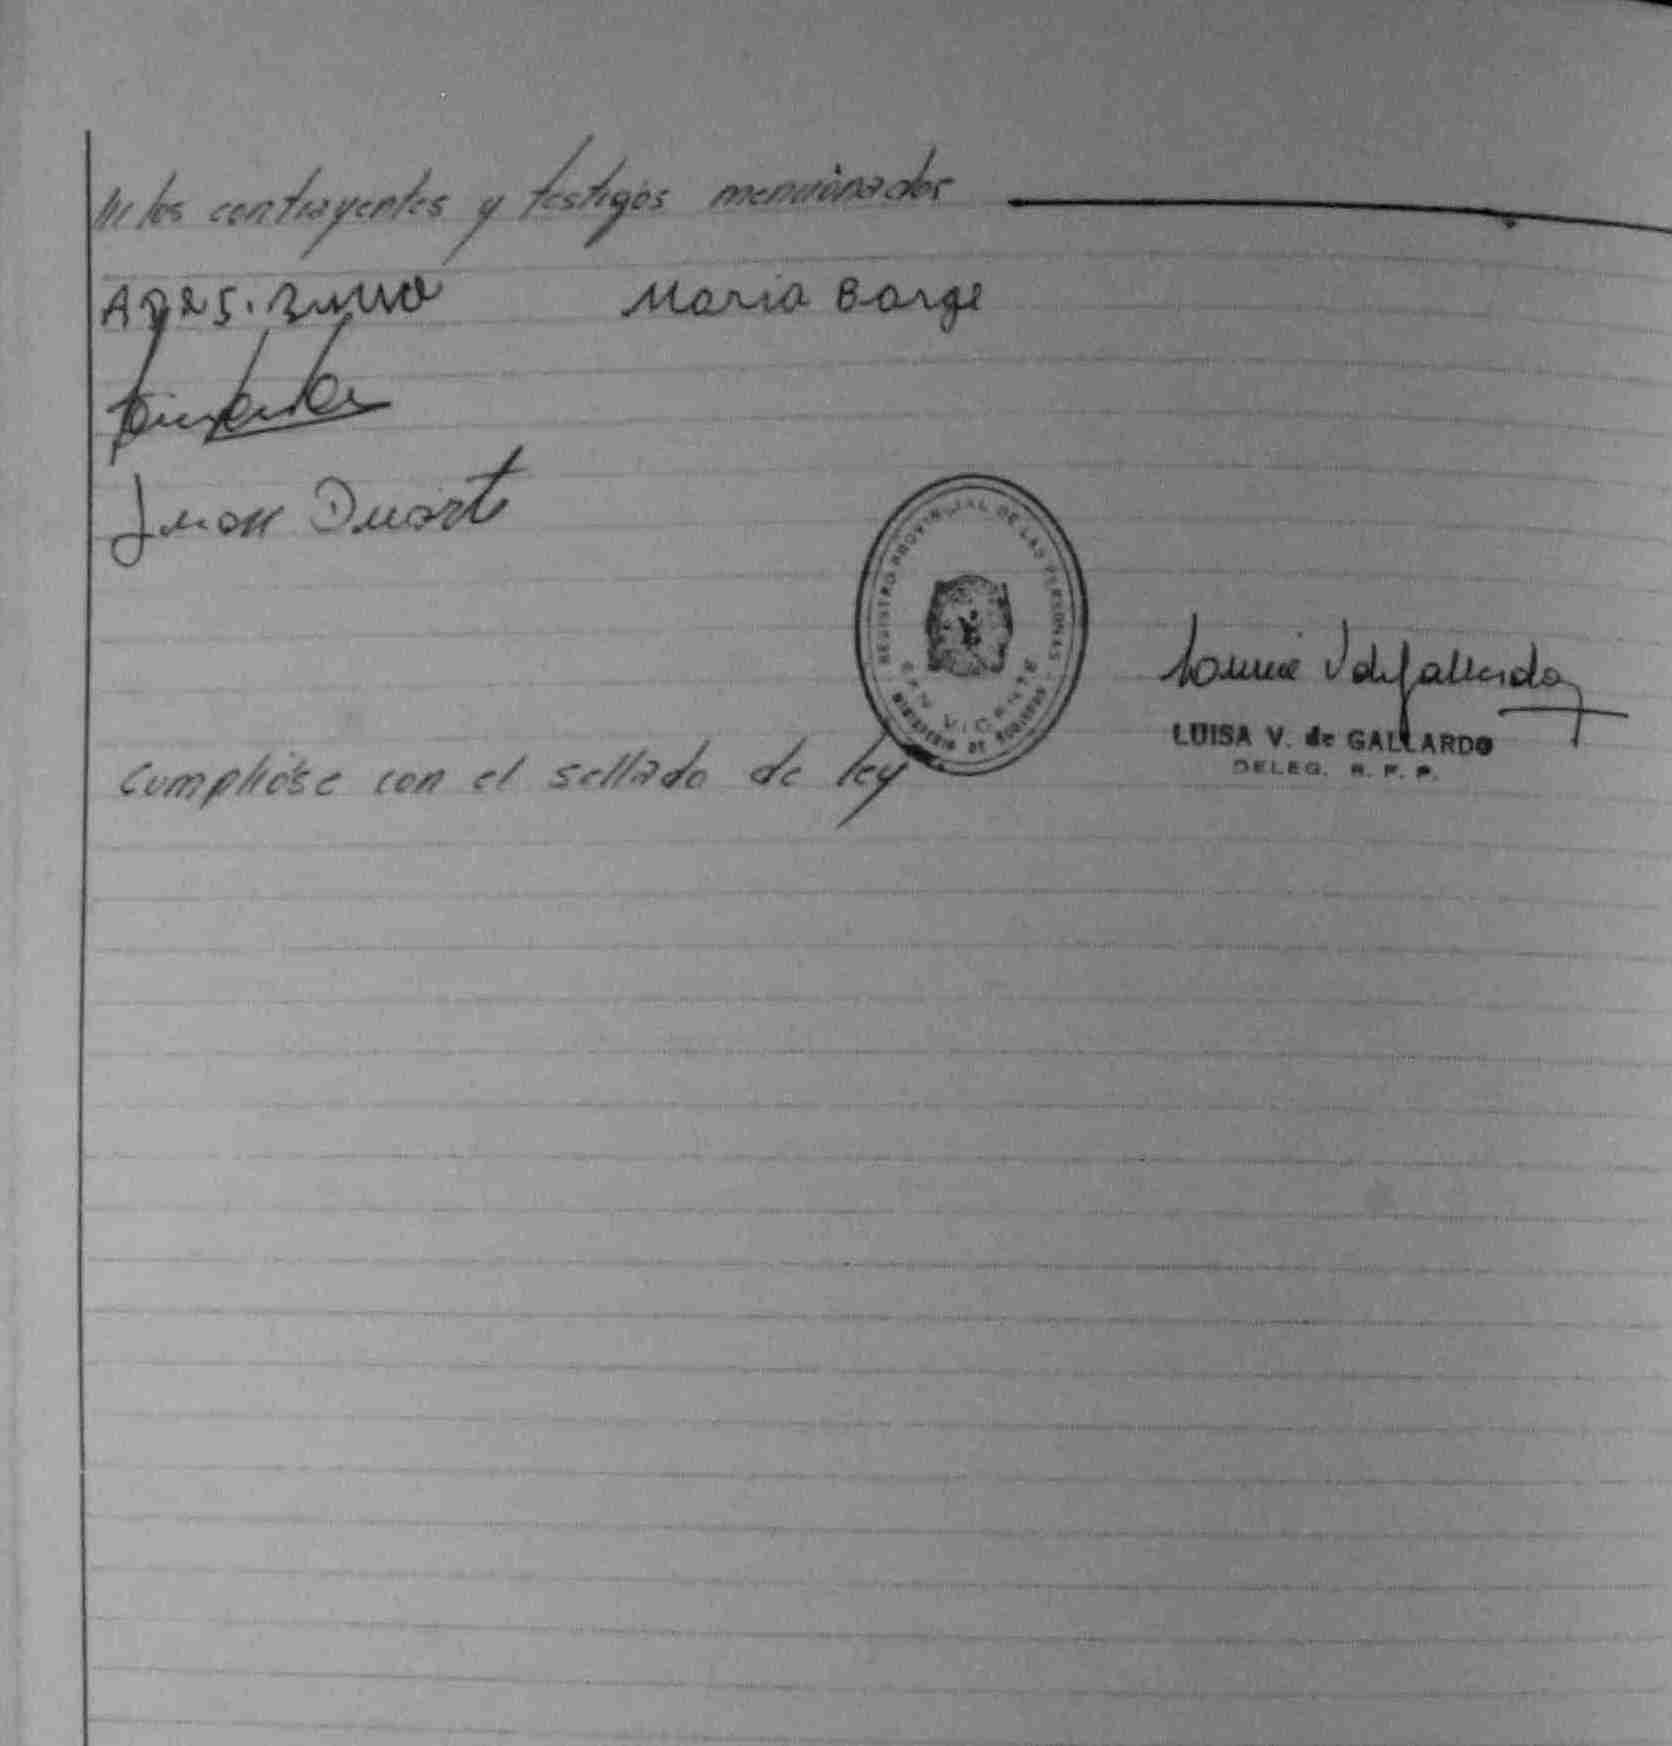 los contrayentes y testigos mencionados
Maria Barge
Juan Duarte
REGISTRO PROVINCIAL DE LAS PERSONAS
SAN VICENTE
MINISTERIO DE GOBIERNO
LUISA V. de GALLARDO
DELEG. R. P. P.
Cumplióse con el sellado de ley